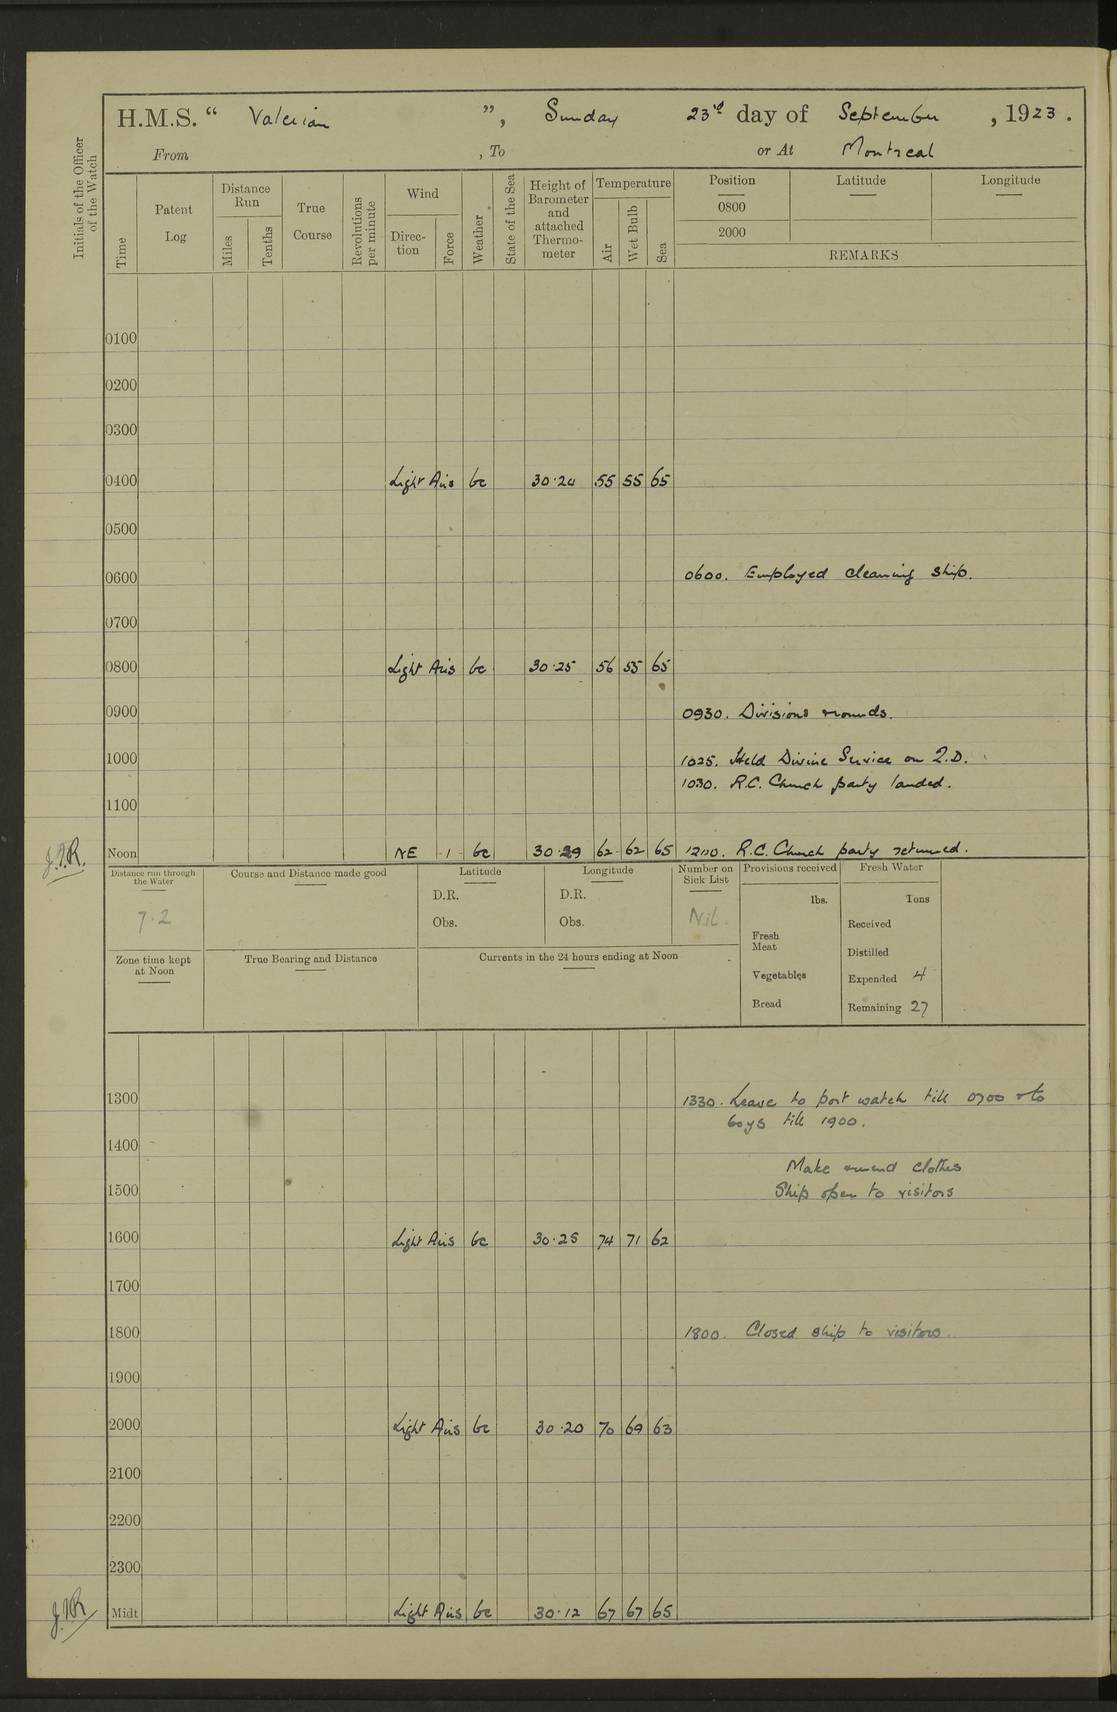 H.M.S. “ Valerian ”, Sunday 23rd day of September, 1923.
From , To or At Montreal
Initials of the Officer of the Watch
Time
Patent Log
Distance Run
Miles
Tenths
True Course
Revolutions per minute
Wind
Direc-tion
Force
Weather
State of the Sea
Height of Barometer and attached Thermo-meter
Temperature
Air
Wet Bulb
Sea
Position Latitude Longitude
0800
2000
REMARKS
0100
0200
0300
0400 Light Airs bc 30.24 55 55 65
0500
0600 0600. Employed cleaning ship.
0700
0800 Light Airs bc 30.25 56 55 65
0900 0930. Divisions & rounds.
1000 1025. Held Divine Service on Q.D.
1030. R.C. Church party landed.
1100
Noon NE 1 bc 30.29 62 62 65 1200. R.C. Church party returned.
Distance run through the Water
7.2
Course and Distance made good
Latitude
D.R.
Obs.
Longitude
D.R.
Obs.
Number on Sick List
Nil.
Provisions received
lbs.
Fresh Meat
Vegetables
Bread
Fresh Water
Tons
Received
Distilled
Expended 4
Remaining 27
Zone time kept at Noon
True Bearing and Distance
Currents in the 24 hours ending at Noon
1300 1330. Leave to port watch till 0700 & to
boys till 1900.
1400
Make & mend clothes
1500 Ship open to visitors
1600 Light Airs bc 30.25 74 71 62
1700
1800 1800. Closed ship to visitors.
1900
2000 Light Airs bc 30.20 70 69 63
2100
2200
2300
Midt Light Airs bc 30.12 67 67 65